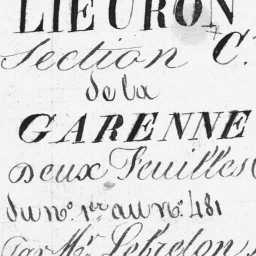 LIEURON
Section C.
de la
GARENNE
Deux Feuilles
du nº. 1er. au nº. 481
Par Mr. Lebreton